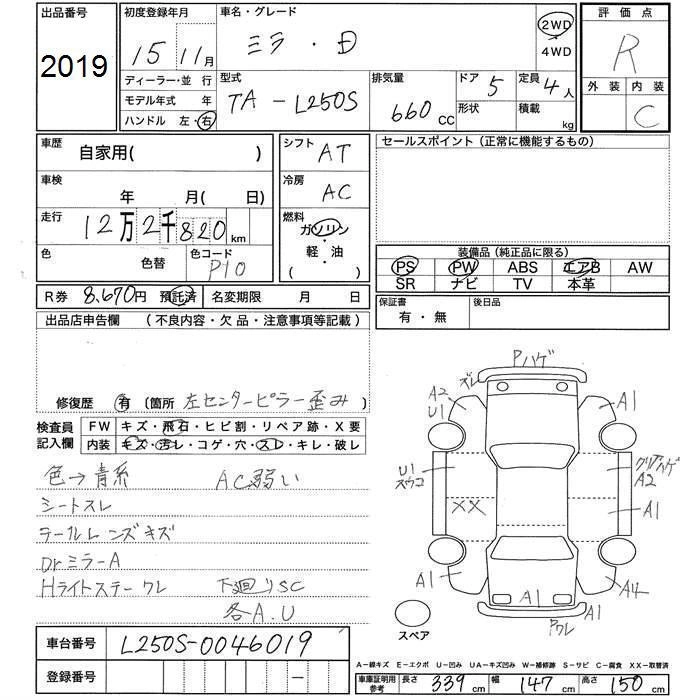 出品番号
2019
初度登録年月
15年11月
車名・グレード
ミラ・D
2WD
4WD
評価点
R
外装 内装
C
ディーラー・並行
モデル年式 年
ハンドル 左・右
型式
TA-L250S
排気量
660 CC
ドア
5
形状
定員
4人
積載
kg
車歴
自家用( )
車検
年 月( 日)
走行
12万2千820 km
色
色替
色コード
P10
シフト
AT
冷房
AC
燃料
ガソリン
軽・油
( )
セールスポイント(正常に機能するもの)
装備品(純正品に限る)
PS PW ABS エアB AW
SR ナビ TV 本革
R券 8,670円 預託済
名変期限 月 日
保証書
有・無
後日品
出品店申告欄 (不良内容・欠品・注意事項等記載)
修復歴 有 (箇所 左センターピラー歪み)
検査員
記入欄
FW キズ・飛石・ヒビ割・リペア跡・X要
内装 キズ・汚レ・コゲ・穴・スレ・キレ・破レ
色→青系
AC弱い
シートスレ
テールレンズキズ
DrミラーA
Hライトステーワレ
下廻りSC
各A.U
Pハゲ
ズレ
A2
U1
A1
U1
スウコ
クリアハゲ
A2
XX
A1
A1
A1
A4
Pワレ
スペア
車台番号
L250S-0046019
登録番号
―
A-線キズ E-エクボ U-凹み UA-キズ凹み W-補修跡 S-サビ C-腐食 XX-取替済
車庫証明用
参考
長さ 339 cm 幅 147 cm 高さ 150 cm